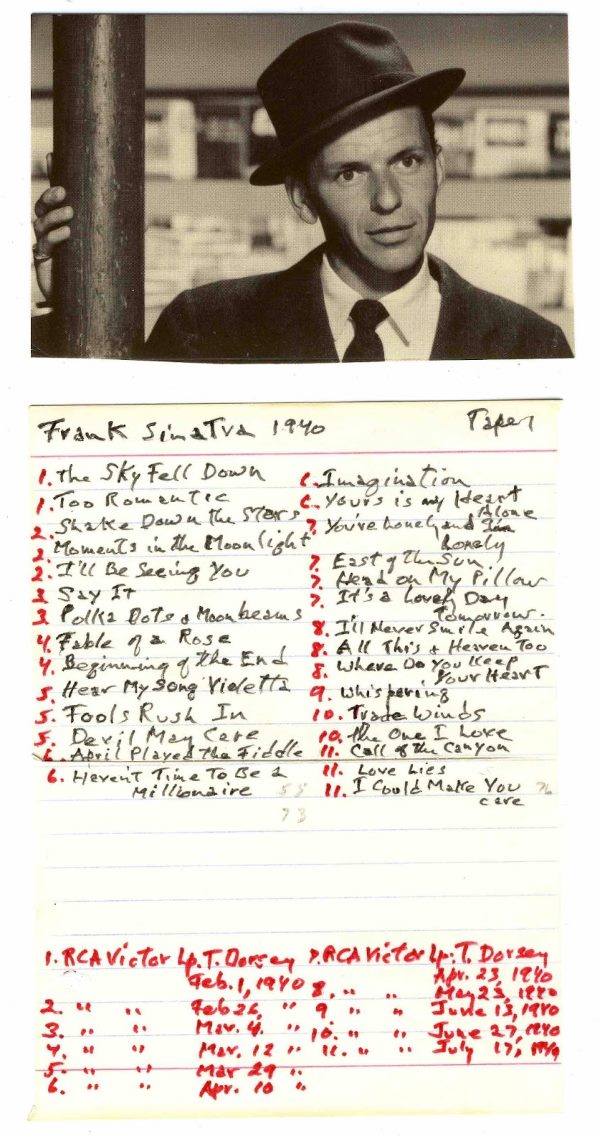 Frank Sinatra 1940 Taper
1. The Sky Fell Down
1. Too Romantic
2. Shake Down the Stars
2. Moments in the Moonlight
2. I'll Be Seeing You
3 Say It
3. Polka Dots & Moonbeams
4. Fable of a Rose
4. Beginning of the End
5. Hear My Song Violetta
5. Fools Rush In
5. Devil May Care
6. April Played the Fiddle
6. Haven't Time To Be a
Millionaire 55
73
6. Imagination
6. Yours is my Heart
Alone
7. You're Lonely and I'm
Lonely
7. East of the Sun.
7. Head on My Pillow
7. It's a Lovely Day
Tomorrow.
8. I'll Never Smile Again
8. All This & Heaven Too
8. Where Do You Keep
Your Heart
9. Whispering
10. Trade Winds
10. The One I Love
11. Call of the Canyon
11. Love Lies
11. I Could Make You 76
care
1. RCA Victor Lp. T. Dorsey
Feb. 1, 1940
2. " " Feb 26, "
3. " " Mar. 4. "
4. " " Mar. 12 "
5. " " Mar 29 "
6. " " Apr. 10 "
7. RCA Victor Lp. T. Dorsey
Apr. 23, 1940
8. " " May 23, 1940
9 " " June 13, 1940
10. " " June 27, 1940
11. " " July 17, 1940